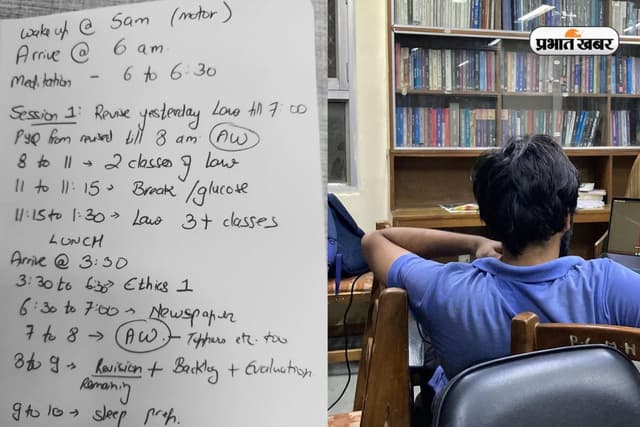 wake up @ 5am (motor)
Arrive @ 6 am.
Meditation - 6 to 6:30
Session 1: Revise yesterday Law till 7:00
PYQ from revised till 8 am. AW
8 to 11 → 2 classes of Law
11 to 11:15 → Break/glucose
11:15 to 1:30 → Law 3+ classes
LUNCH
Arrive @ 3:30
3:30 to 6:30 → Ethics 1
6:30 to 7:00 → Newspaper
7 to 8 → AW - Toppers etc. too
8 to 9 → Revision + Backlog + Evaluation
Remaining
9 to 10 → sleep prep.
प्रभात खबर